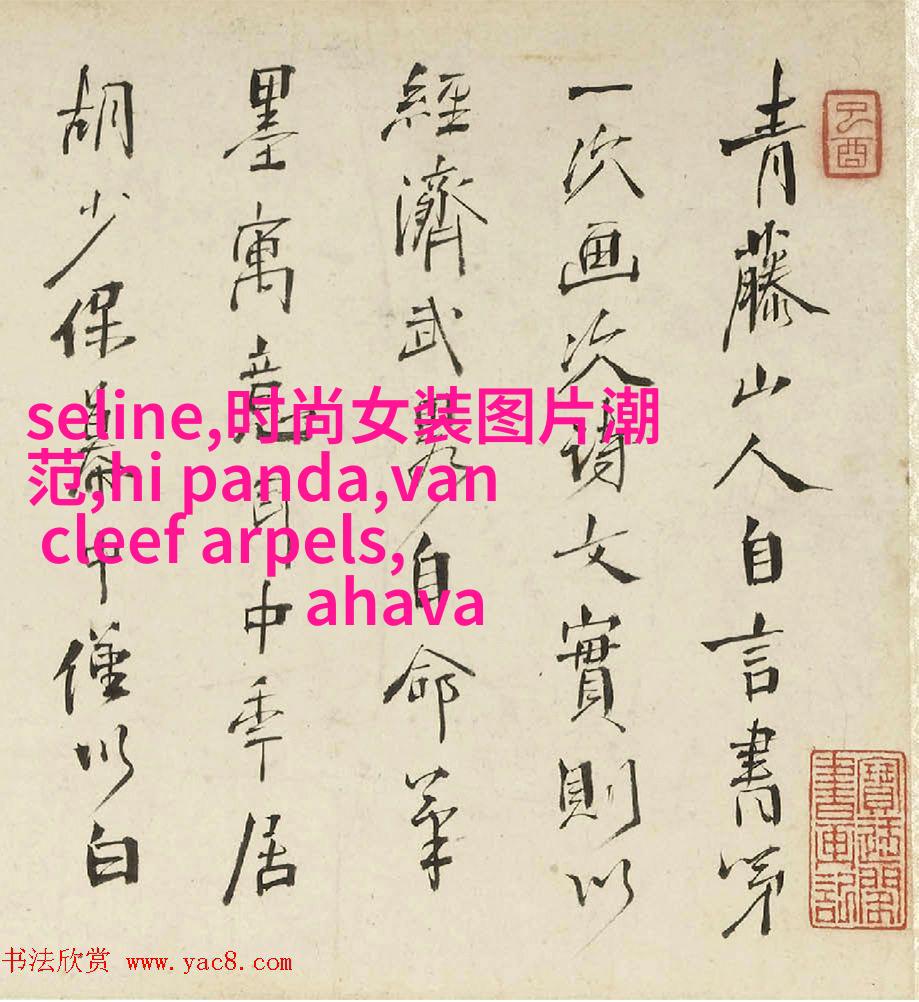 青藤山人自言書第
一次画次詩文實則以
經濟武畧自命筆
墨寓意耳中年居
胡少保幕中僅以白
乙酉
寶迂閣
書畫記
seline,时尚女装图片潮
范,hi panda,van
cleef arpels,
ahava
书法欣赏 www.yac8.com